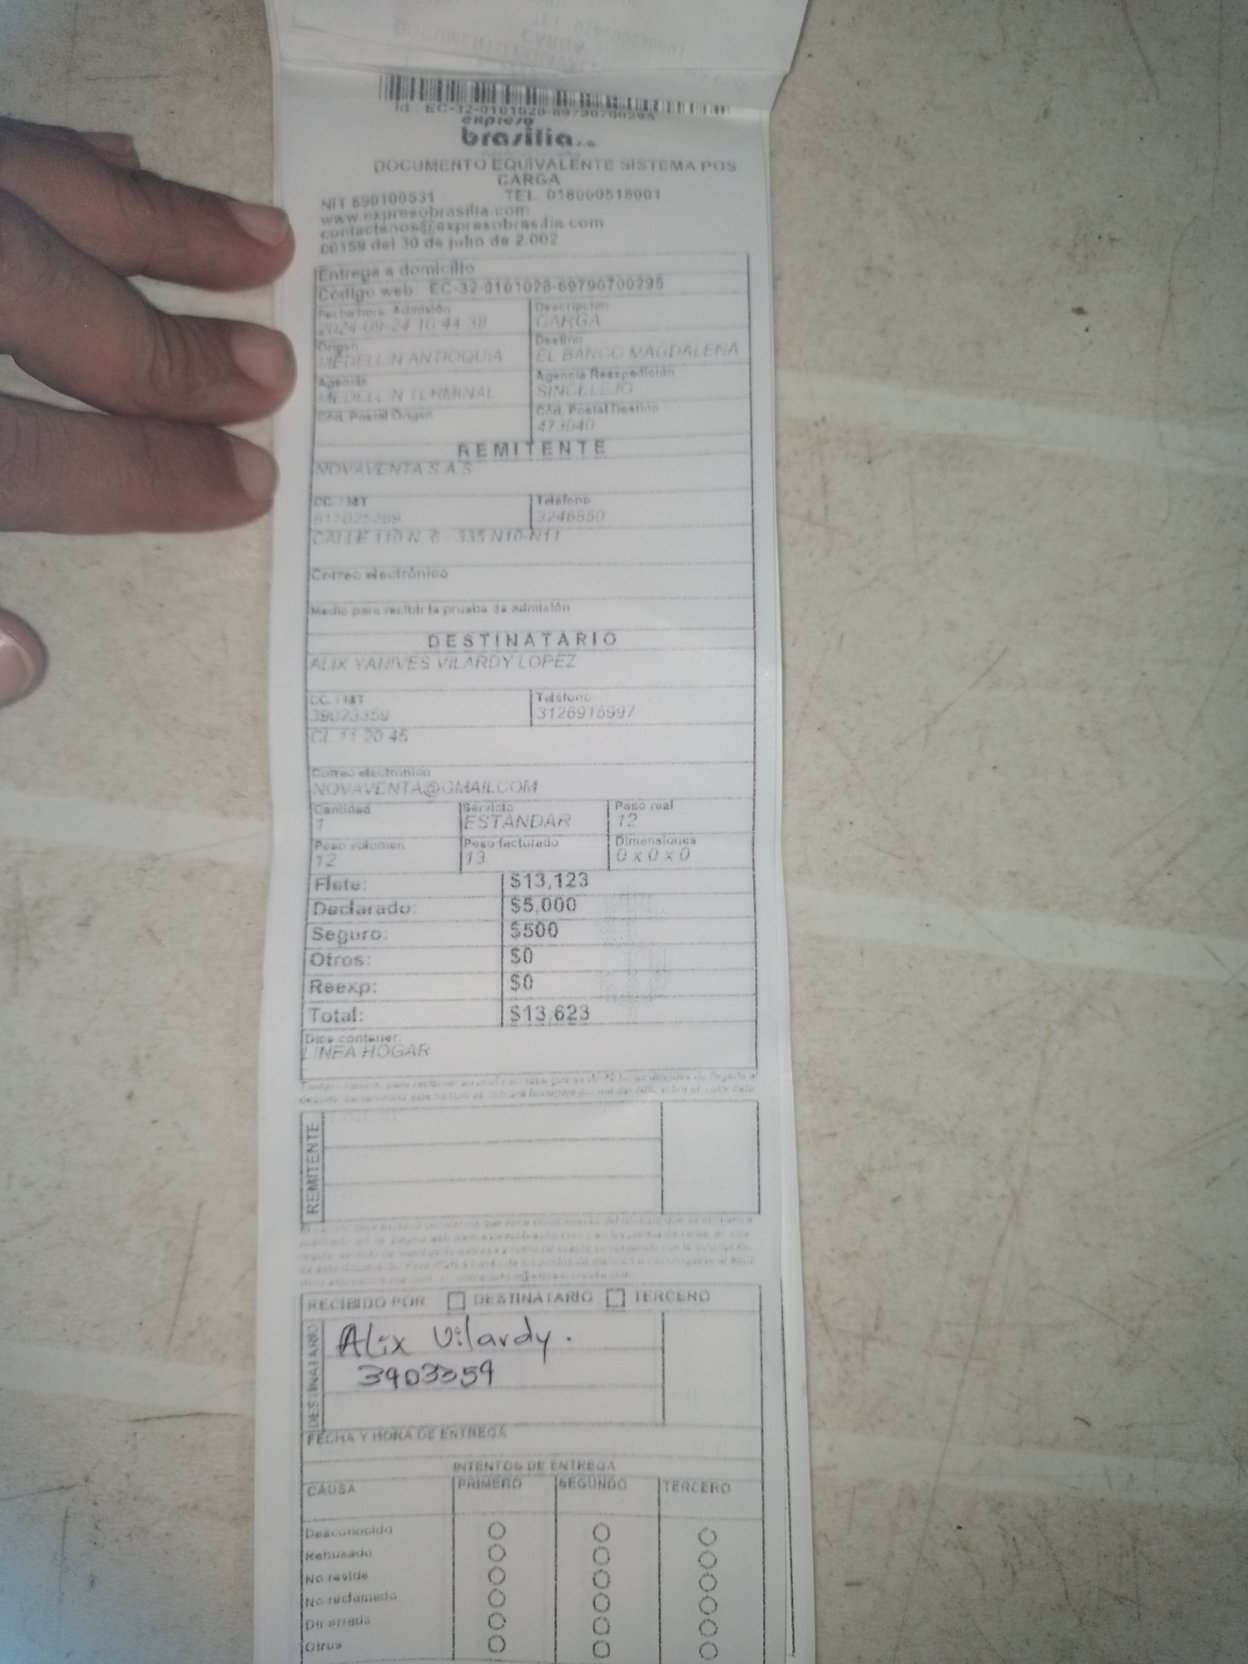 Id.: EC-32-0101028-69790700295
expreso
brasilia s.a.
DOCUMENTO EQUIVALENTE SISTEMA POS
CARGA
NIT 890100531 TEL. 018000518001
www.expresobrasilia.com
contactenos@expresobrasilia.com
00159 del 30 de julio de 2.002
Entrega a domicilio
Código web: EC-32-0101028-69790700295
Fecha hora. Admisión Descripcion
2024-09-24 16:44:38 CARGA
Origen Destino
MEDELLIN ANTIOQUIA EL BANCO MAGDALENA
Agencia Agencia Reexpedición
MEDELLIN TERMINAL SINCELEJO
Cód. Postal Origen Cód. Postal Destino
473040
REMITENTE
NOVAVENTA S.A.S
CC. / NIT Teléfono
811025289 3246550
CALLE 110 N 6 - 335 N10-N11
Correo electrónico
Medio para recibir la prueba de admisión
DESTINATARIO
ALIX YANIVES VILARDY LOPEZ
CC. / NIT Teléfono
39023359 3126915997
CL 11 20 45
Correo electronico
NOVAVENTA@GMAIL.COM
Cantidad Servicio Peso real
1 ESTANDAR 12
Peso volumen Peso facturado Dimensiones
12 13 0 x 0 x 0
Flete: $13,123
Declarado: $5,000
Seguro: $500
Otros: $0
Reexp: $0
Total: $13,623
Dice contener:
LINEA HOGAR
REMITENTE
RECIBIDO POR DESTINATARIO TERCERO
DESTINATARIO
Alix Vilardy.
3903359
FECHA Y HORA DE ENTREGA
INTENTOS DE ENTREGA
CAUSA PRIMERO SEGUNDO TERCERO
Desconocido
Rehusado
No reside
No reclamado
Dir errada
Otros